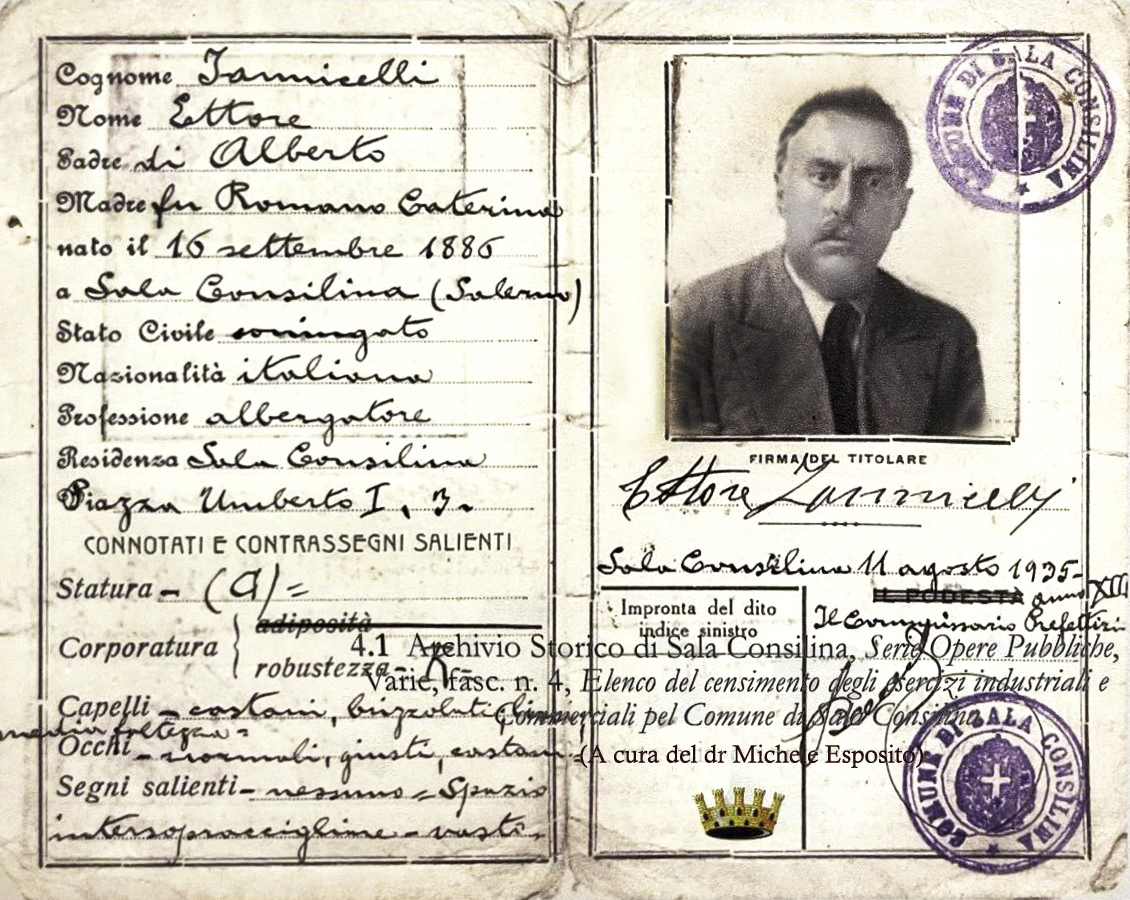 Cognome Iannicelli
Nome Ettore
Padre di Alberto
Madre fu Romano Caterina
nato il 16 settembre 1886
a Sala Consilina (Salerno)
Stato Civile coniugato
Nazionalità italiana
Professione albergatore
Residenza Sala Consilina
Piazza Umberto I, 3.
CONNOTATI E CONTRASSEGNI SALIENTI
Statura - (A) =
Corporatura
adiposità
robustezza
Capelli - castani, brizzolati
media foltezza =
Occhi - normali, giusti, castani
Segni salienti - nessuno = Spazio
intersopraccigliare - vasto.
COMUNE DI SALA CONSILINA
FIRMA DEL TITOLARE
Ettore Iannicelli
Sala Consilina 11 agosto 1935 -
IL PODESTÀ anno XIII
Il Commissario Prefettizio
Impronta del dito
indice sinistro
4.1 Archivio Storico di Sala Consilina, Serie Opere Pubbliche,
Varie, fasc. n. 4, Elenco del censimento degli esercizi industriali e
Commerciali pel Comune di Sala Consilina
(A cura del dr Michele Esposito)
COMUNE DI SALA CONSILINA